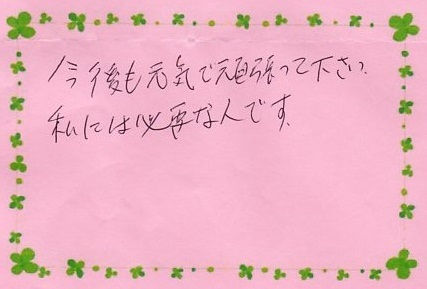 今後も元気で頑張って下さい。
私には必要な人です。